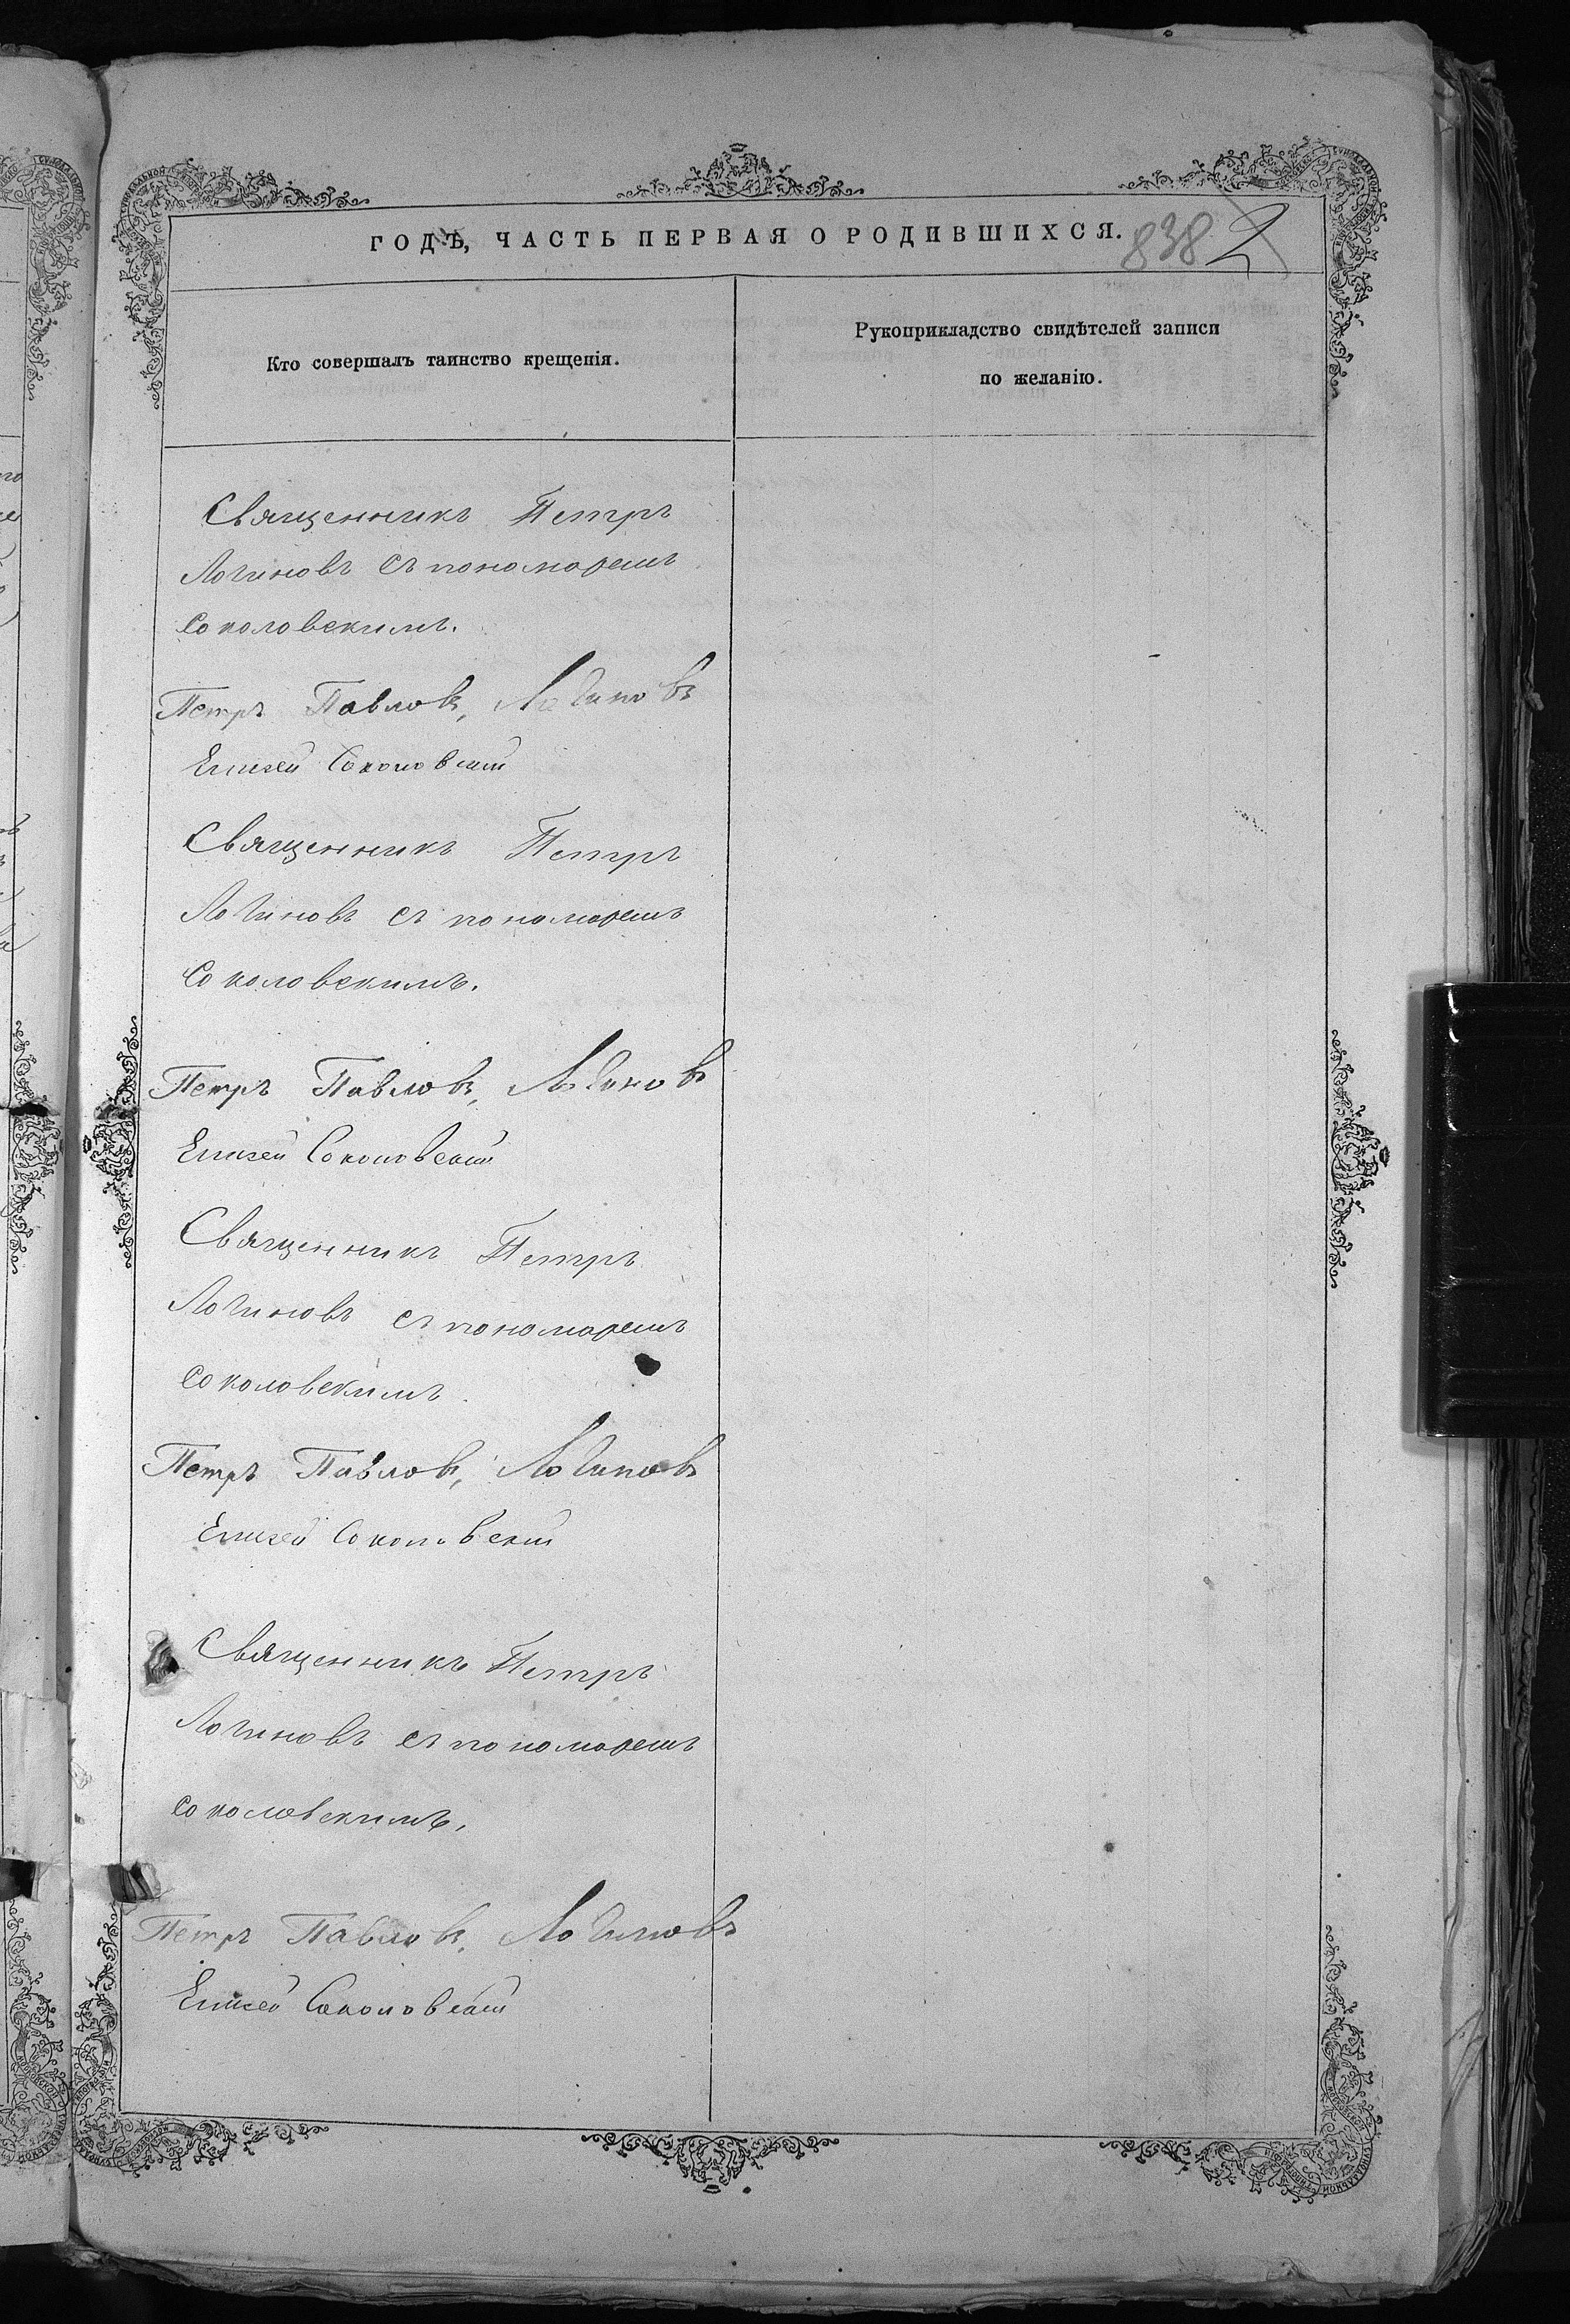 ГОДЪ, ЧАСТЬ ПЕРВАЯ О РОДИВШИХСЯ.
838 2
Кто совершалъ таинство крещенія.
Рукоприкладство свидѣтелей записи
по желанію.
Священникъ Петръ
Логиновъ съ пономаремъ
Соколовскимъ.
Петръ Павловъ, Логиновъ
Елисей Соколовскій
Священникъ Петръ
Логиновъ съ пономаремъ
Соколовскимъ.
Петръ Павловъ, Логиновъ
Елисей Соколовскій
Священникъ Петръ
Логиновъ съ пономаремъ
Соколовскимъ.
Петръ Павловъ, Логиновъ
Елисей Соколовскій
Священникъ Петръ
Логиновъ съ пономаремъ
Соколовскимъ.
Петръ Павловъ, Логиновъ
Елисей Соколовскій